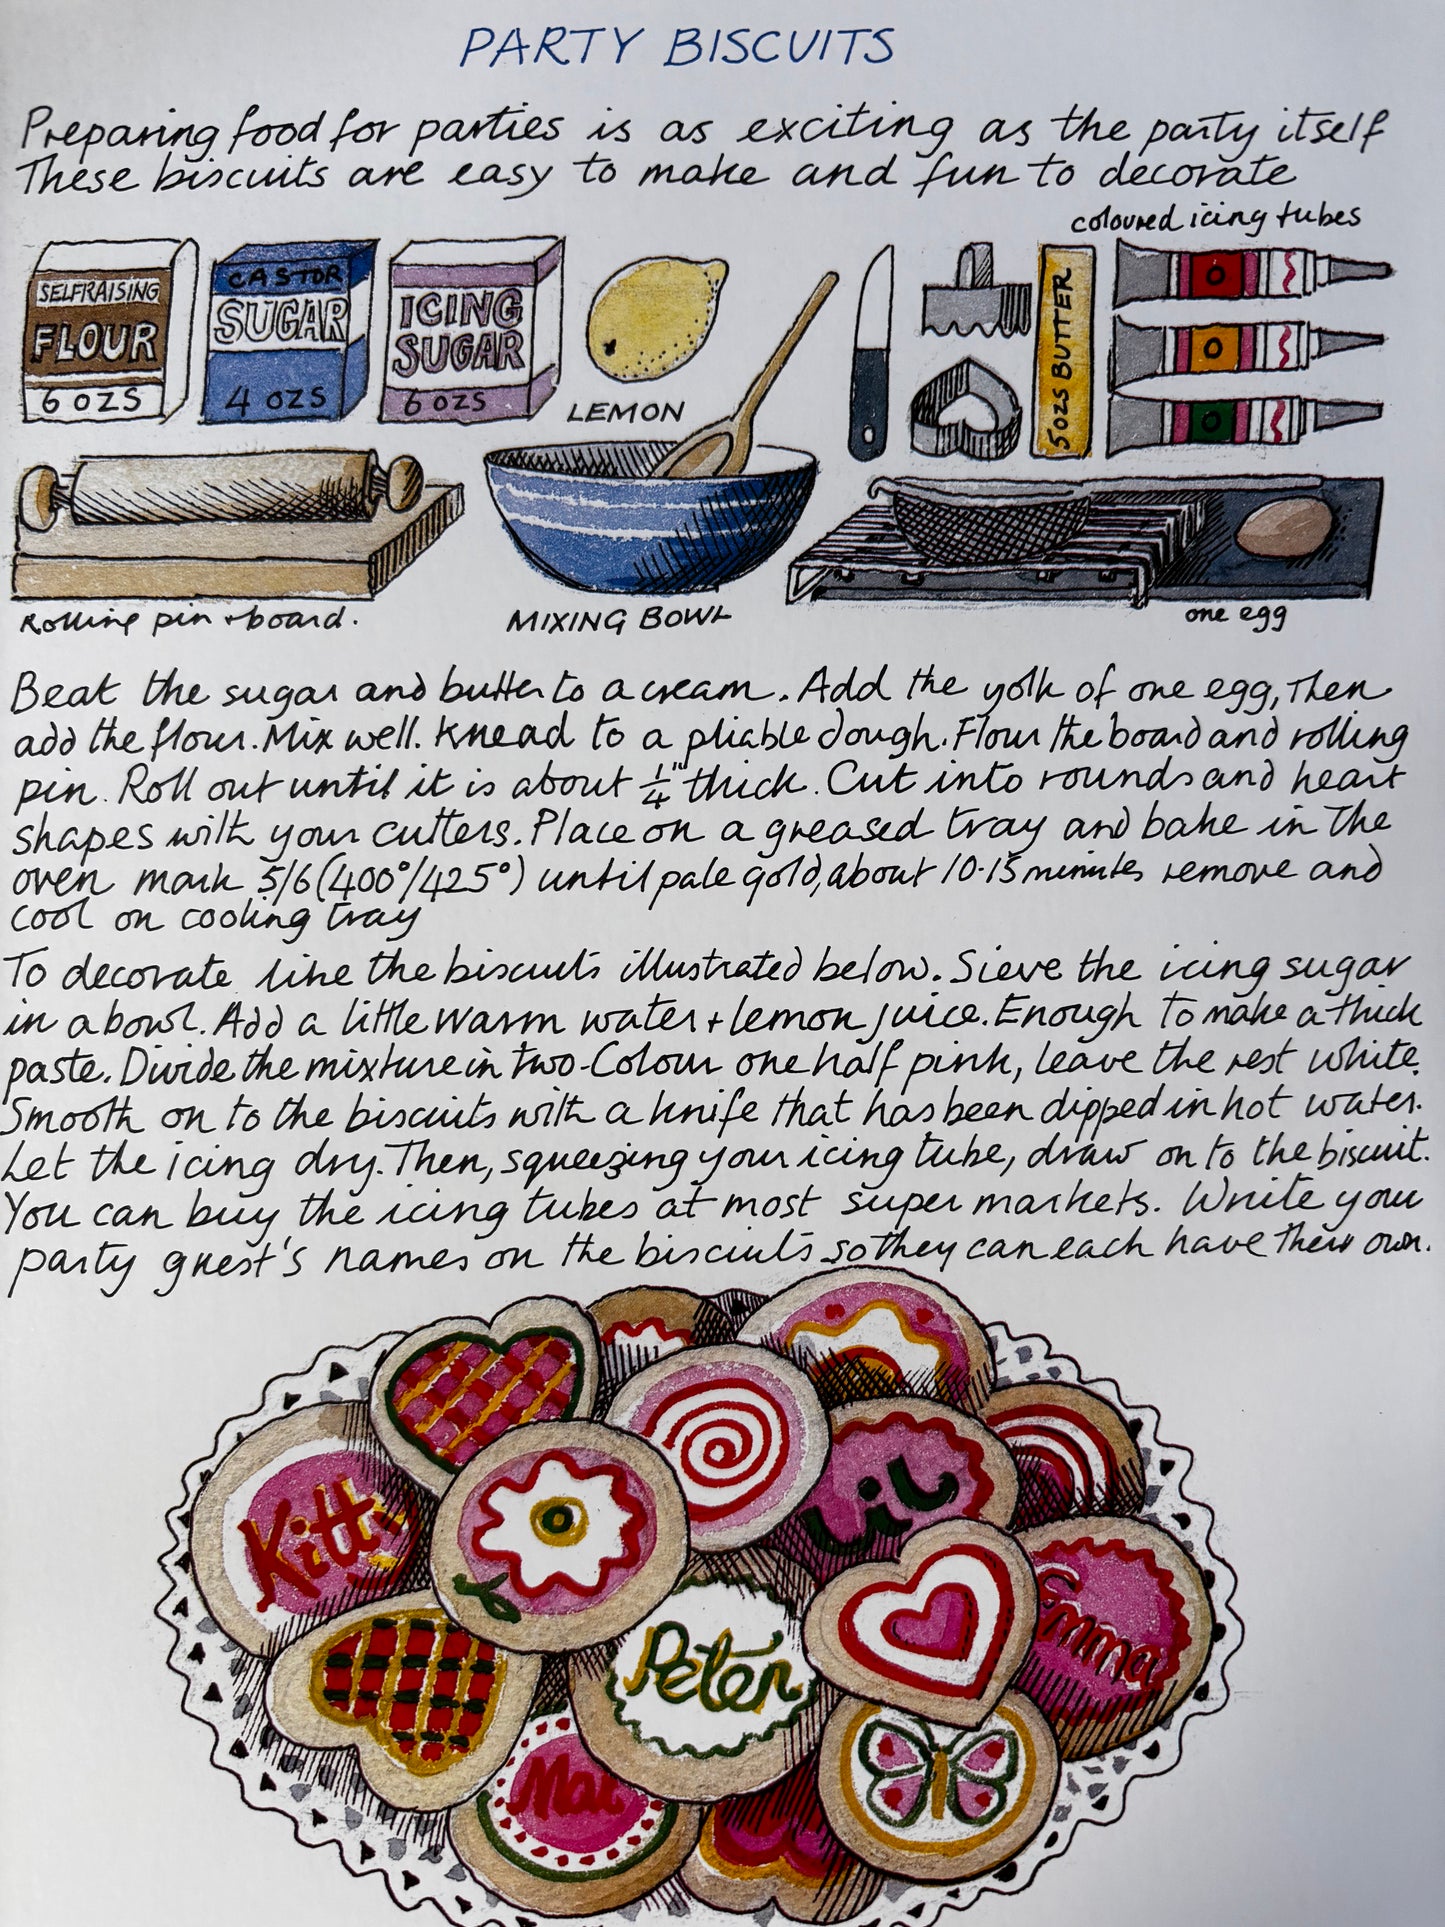 PARTY BISCUITS
Preparing food for parties is as exciting as the party itself
These biscuits are easy to make and fun to decorate
coloured icing tubes
SELFRAISING
FLOUR
6 OZS
CASTOR
SUGAR
4 OZS
ICING
SUGAR
6 OZS
LEMON
5OZS BUTTER
Rolling pin + board.
MIXING BOWL
one egg
Beat the sugar and butter to a cream. Add the yolk of one egg, Then
add the flour. Mix well. Knead to a pliable dough. Flour the board and rolling
pin. Roll out until it is about 1/4" thick. Cut into rounds and heart
shapes with your cutters. Place on a greased tray and bake in the
oven mark 5/6 (400°/425°) until pale gold, about 10-15 minutes remove and
cool on cooling tray
To decorate like the biscuits illustrated below. Sieve the icing sugar
in a bowl. Add a little warm water + lemon juice. Enough to make a thick
paste. Divide the mixture in two. Colour one half pink, leave the rest white.
Smooth on to the biscuits with a knife that has been dipped in hot water.
Let the icing dry. Then, squeezing your icing tube, draw on to the biscuit.
You can buy the icing tubes at most super markets. Write your
party guest's names on the biscuits so they can each have their own.
Kitty
Lil
Peter
Emma
Max